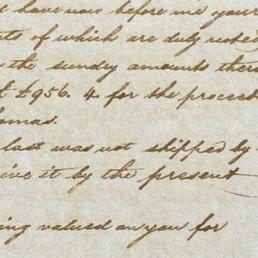 have now before me your
of which are duly noted
the sundry amounts
£956. 4 for the proceeds
last was not shipped by
it by the present
valued on you for